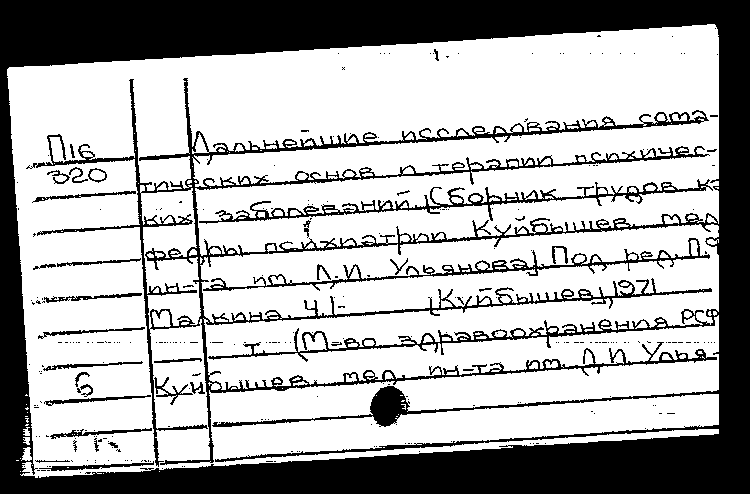 П16 Дальнейшие исследования сома-
320 тических основ и терапии психичес-
ких заболеваний. [Сборник трудов ка
федры психиатрии Куйбышев. мед.
ин-та им. Д.И. Ульянова]. Под ред. П.Ф
Малкина. Ч. 1- [Куйбышев], 1971
т. (М-во здравоохранения РСФ
6 Куйбышев. мед. ин-та им Д.И. Улья-